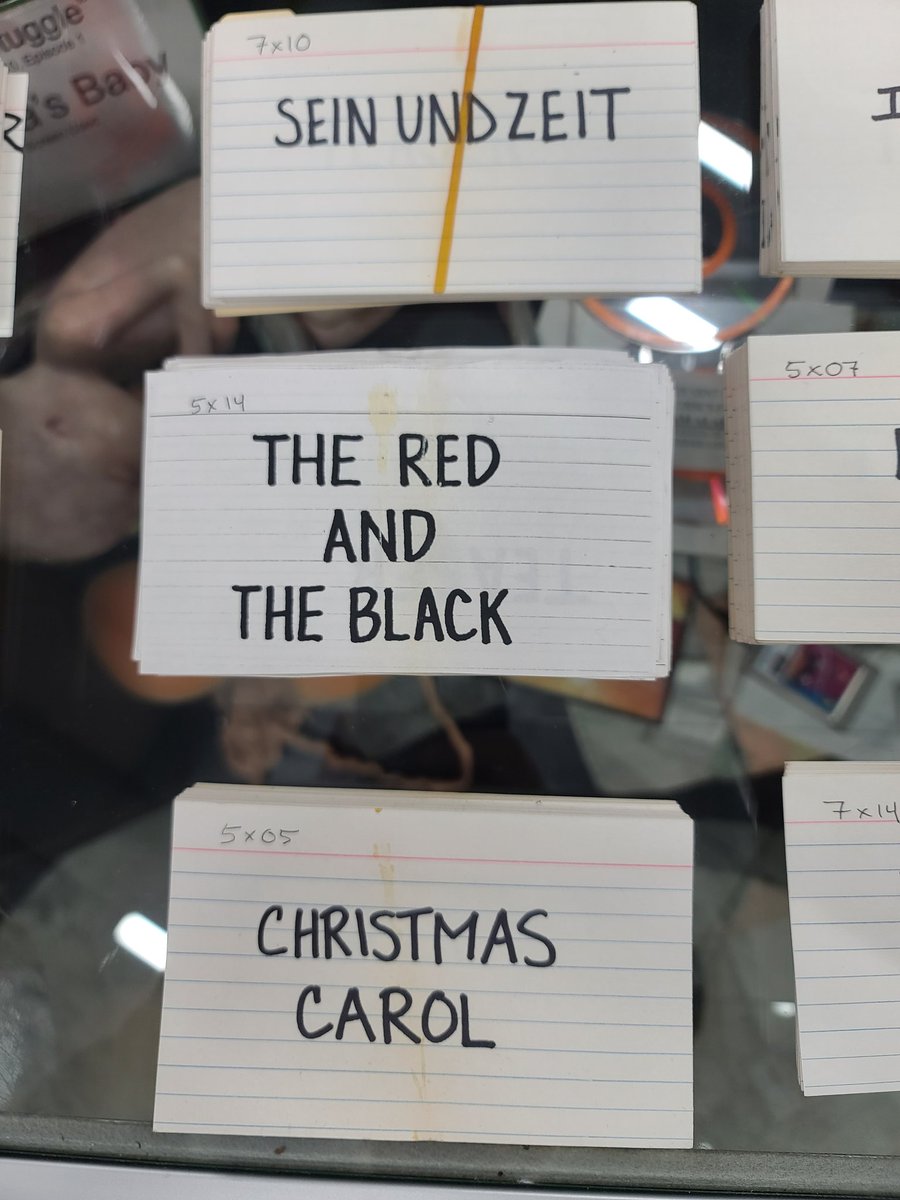 7x10
SEIN UND ZEIT
5x14
THE RED
AND
THE BLACK
5x07
5x05
CHRISTMAS
CAROL
7x14
Episode 1
's Baby